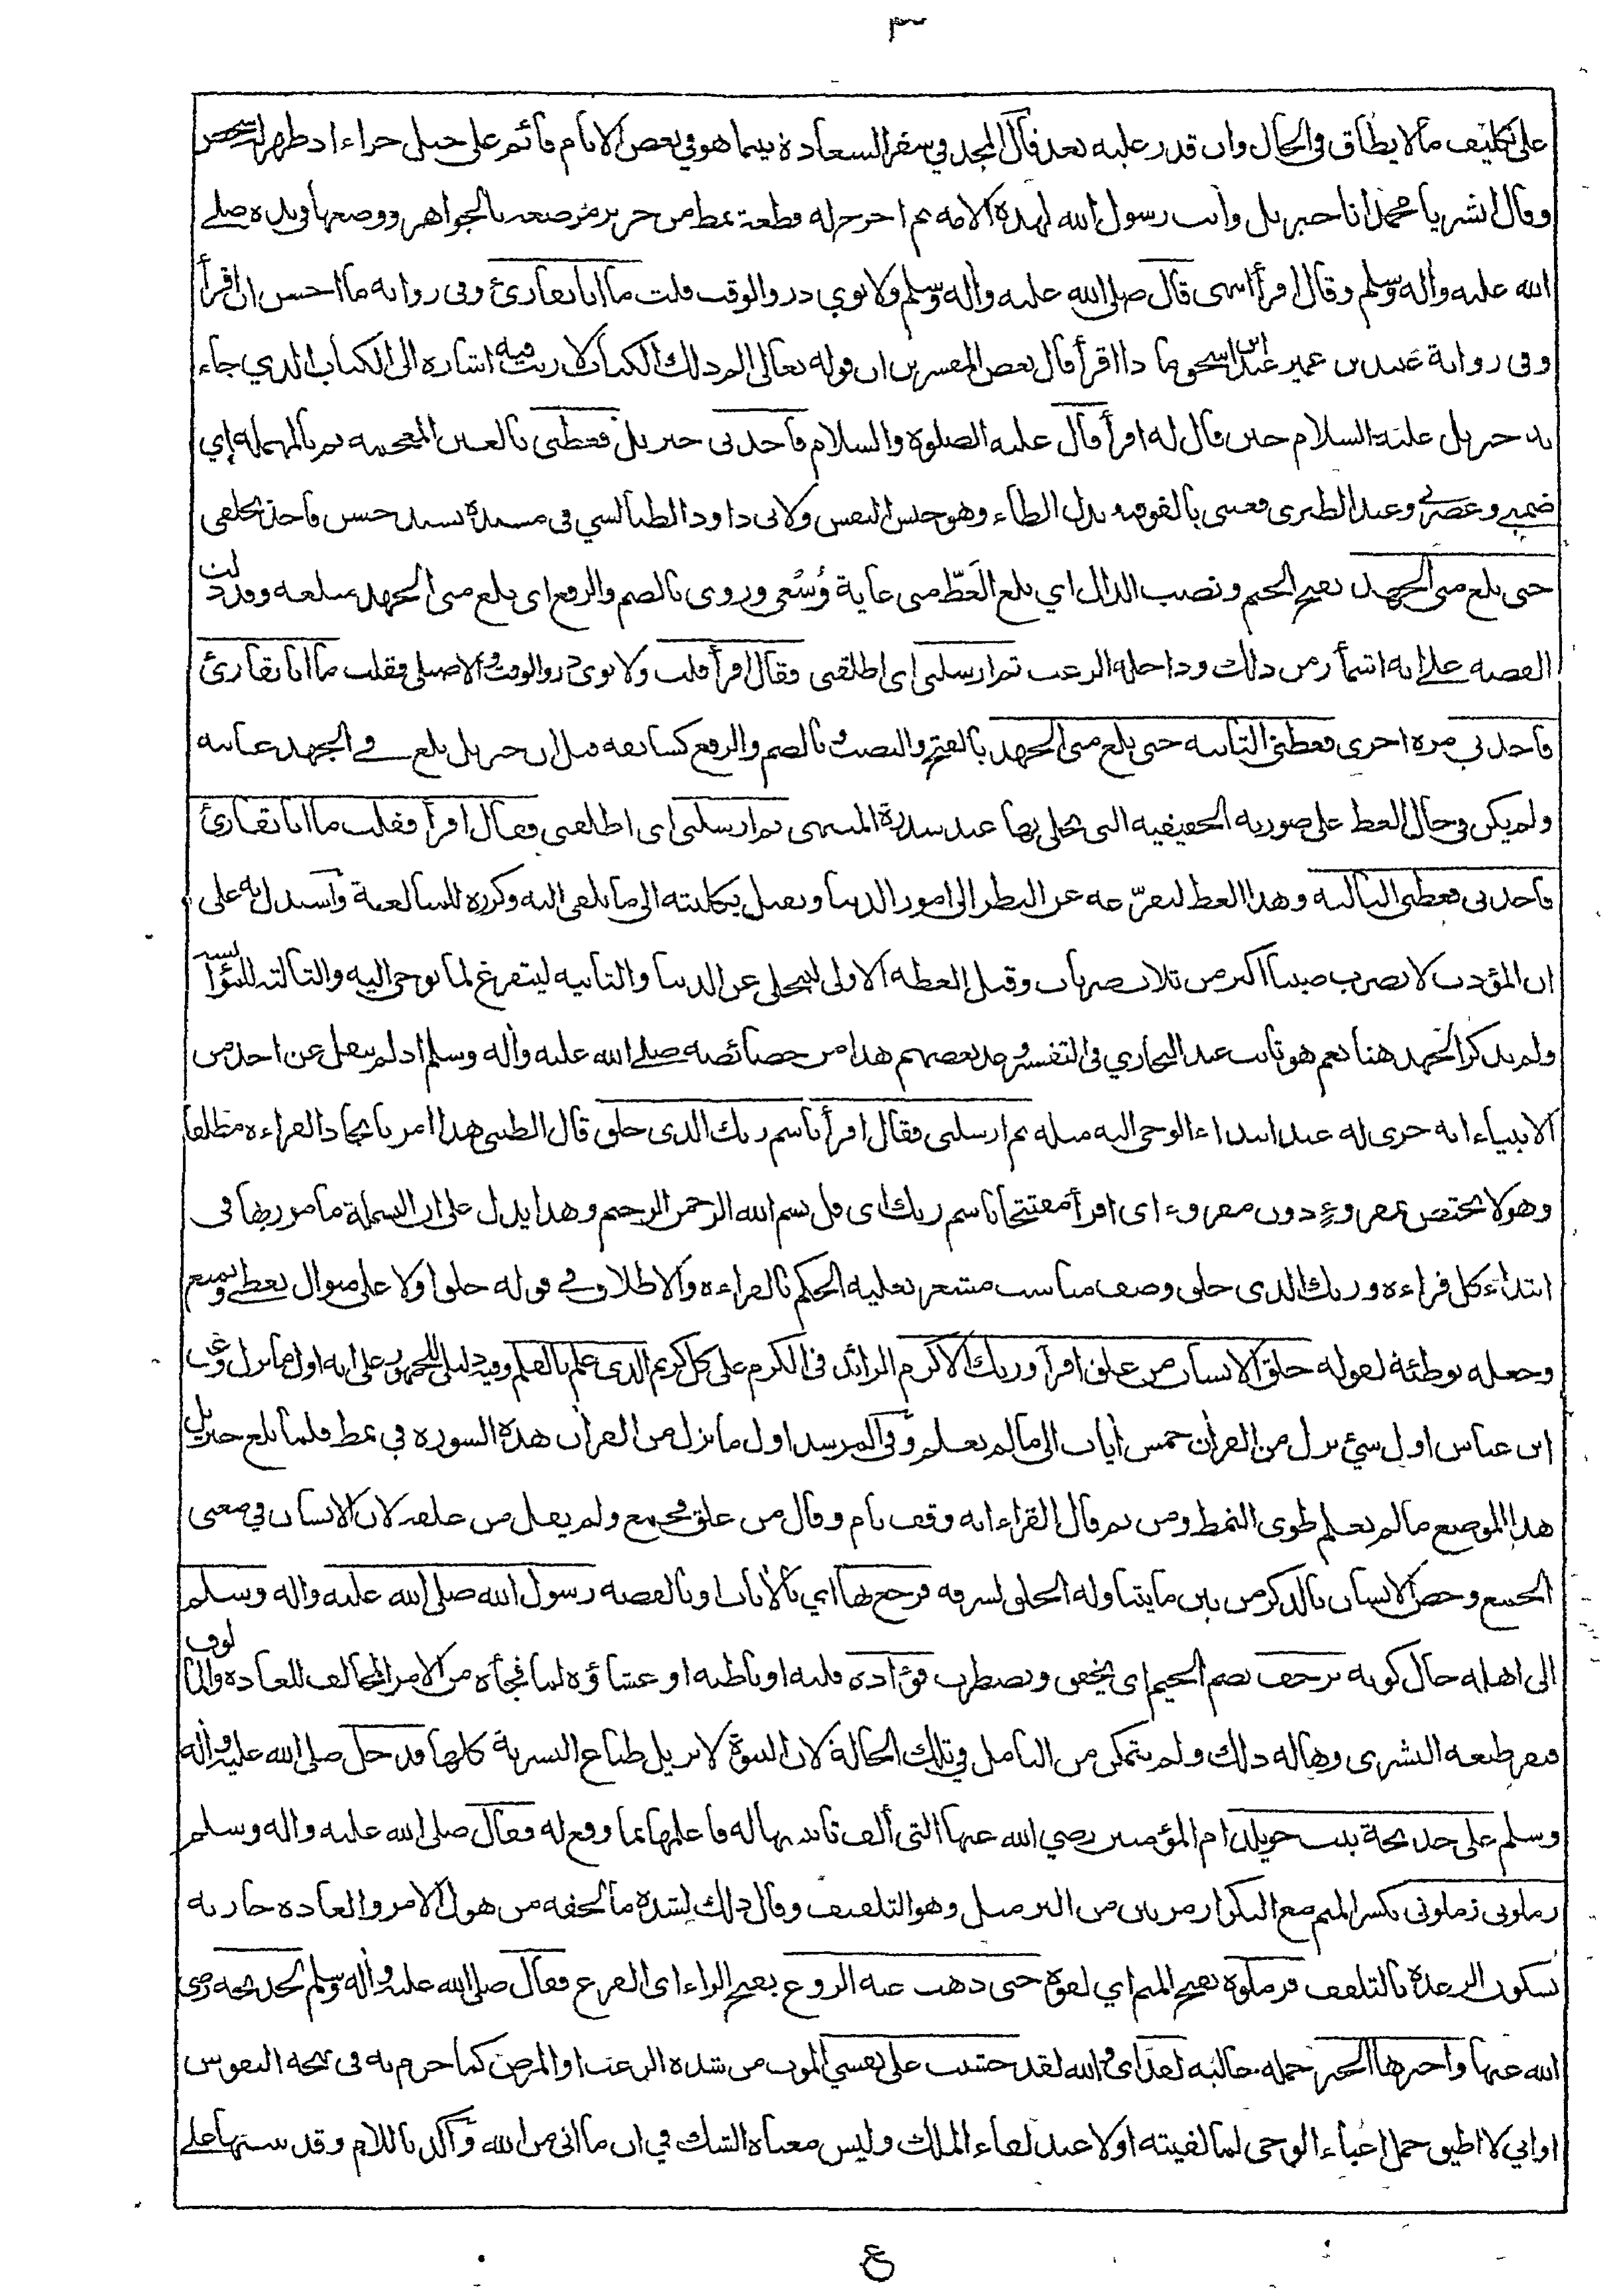 ٣
على تكليف مالا يطاق في الحال وان قدر عليه بعد قال المجد في سفر السعادة بينما هو في بعض الايام قائم على جبل حراء اذ ظهر له شخص
وقال ابشر يا محمد انا جبريل وانت رسول الله لهذه الامه ثم اخرج له قطعة نمط من حرير مرصعه بالجواهر ووضعها في يده صلى
الله عليه واله وسلم وقال اقرأ اسمى قال صلى الله عليه واله وسلم ولابوي ذر والوقت قلت ما انا بقارئ وفى روايه ما احسن ان اقرأ
وفى رواية عبيد بن عمير عند ابن اسحق ما ذا اقرأ قال بعض المفسرين ان قوله تعالى الم ذلك الكتاب لا ريب فيه اشاره الى الكتاب الذي جاء
به جبريل عليه السلام حين قال له اقرأ قال عليه الصلوة والسلام فاخذنى جبريل فغطنى بالغين المعجمه ثم بالمهمله اي
ضمنى وعصرنى وعند الطبرى فغتنى بالفوقيه بدل الطاء وهو حبس النفس ولابى داود الطيالسي في مسنده بسند حسن فاخذ بحلقى
حتى بلغ منى الجهد بفتح الجيم ونصب الدال اي بلغ الغَطّ منى غاية وُسْعى وروى بالضم والرفع اى بلغ منى الجهد مبلغه وقد دلت
القصه على انه اشمأز من ذلك وداخله الرعب ثم ارسلنى اى اطلقنى فقال اقرأ قلت ولابوى ذر والوقت والاصيلى فقلت ما انا بقارئ
فاخذنى مره اخرى فغطنى الثانيه حتى بلغ منى الجهد بالفتح والنصب وبالضم والرفع كسابقه قيل ان جبريل بلغ في الجهد غايته
ولم يكن في حال الغط على صورته الحقيقيه التى تجلى بها عند سدرة المنتهى ثم ارسلنى اى اطلقنى فقال اقرأ فقلت ما انا بقارئ
فاخذنى فغطنى الثالثه وهذا الغط ليفرّغه عن النظر الى امور الدنيا ويقبل بكليته الى ما يلقى اليه وكرره للمبالغة واستدل به على
ان المؤدب لا يضرب صبيا اكثر من ثلاث ضربات وقيل الغطه الاولى ليتخلى عن الدنيا والثانيه ليتفرغ لما يوحى اليه والثالثه للمؤانسه
ولم يذكر الجهد هنا نعم هو ثابت عند البخاري في التفسير وعد بعضهم هذا من خصائصه صلى الله عليه واله وسلم اذ لم ينقل عن احد من
الانبياء انه جرى له عند ابتداء الوحى اليه مثله ثم ارسلنى فقال اقرأ باسم ربك الذى خلق قال الطيبى هذا امر بايجاد القراءه مطلقا
وهو لا يختص بمقروءٍ دون مقروء اى اقرأ مفتتحا باسم ربك اى قل بسم الله الرحمن الرحيم وهذا يدل على ان البسملة مامور بها فى
ابتداء كل قراءه وربك الذى خلق وصف مناسب مشعر بعليه الحكم بالقراءه والاطلاق في قوله خلق اولا على منوال يعطي ويمنع
وجعله توطئة لقوله خلق الانسان من علق اقرأ وربك الاكرم الزائد فى الكرم على كل كريم الذى علم بالقلم وفيه دليل للجمهور على انه اول ما نزل وعن
ابن عباس اول شئ نزل من القرآن خمس آيات الى مالم يعلم وفى المرشد اول ما نزل من القرآن هذه السوره في نمط فلما بلغ جبريل
هذا الموضع مالم يعلم طوى النمط ومن ثم قال القراء انه وقف تام وقال من علق فجمع ولم يقل من علقه لان الانسان في معنى
الجمع وخص الانسان بالذكر من بين ما يتناوله الخلق لشرفه فرجع بها اي بالآيات او بالقصه رسول الله صلى الله عليه واله وسلم
الى اهله حال كونه يرجف بضم الجيم اى يخفق ويضطرب فؤاده قلبه او باطنه او غشاؤه لما فجأه من الامر المخالف للعاده والمالوف
فنفر طبعه البشرى وهاله ذلك ولم يتمكن من التامل في تلك الحالة لان النبوة لا تزيل طباع البشرية كلها فدخل صلى الله عليه واله
وسلم على خديجة بنت خويلد ام المؤمنين رضي الله عنها التى ألف تانيسها له فاعلمها بما وقع له فقال صلى الله عليه واله وسلم
زملونى زملونى بكسر الميم مع التكرار مرتين من التزميل وهو التلفيف وقال ذلك لشدة ما لحقه من هول الامر والعاده جاريه
بسكون الرعدة بالتلفف فزملوه بفتح الميم اي لفوه حتى ذهب عنه الروع بفتح الراء اى الفزع فقال صلى الله عليه واله وسلم لخديجه رضى
الله عنها واخبرها الخبر جمله حاليه لقد اى والله لقد خشيت على نفسي الموت من شده الرعب او المرض كما جزم به فى بهجه النفوس
او انى لا اطيق حمل اعباء الوحى لما لقيته اولا عند لقاء الملك وليس معناه الشك في ان ما اتى من الله واكد باللام وقد تنبيها على
ع